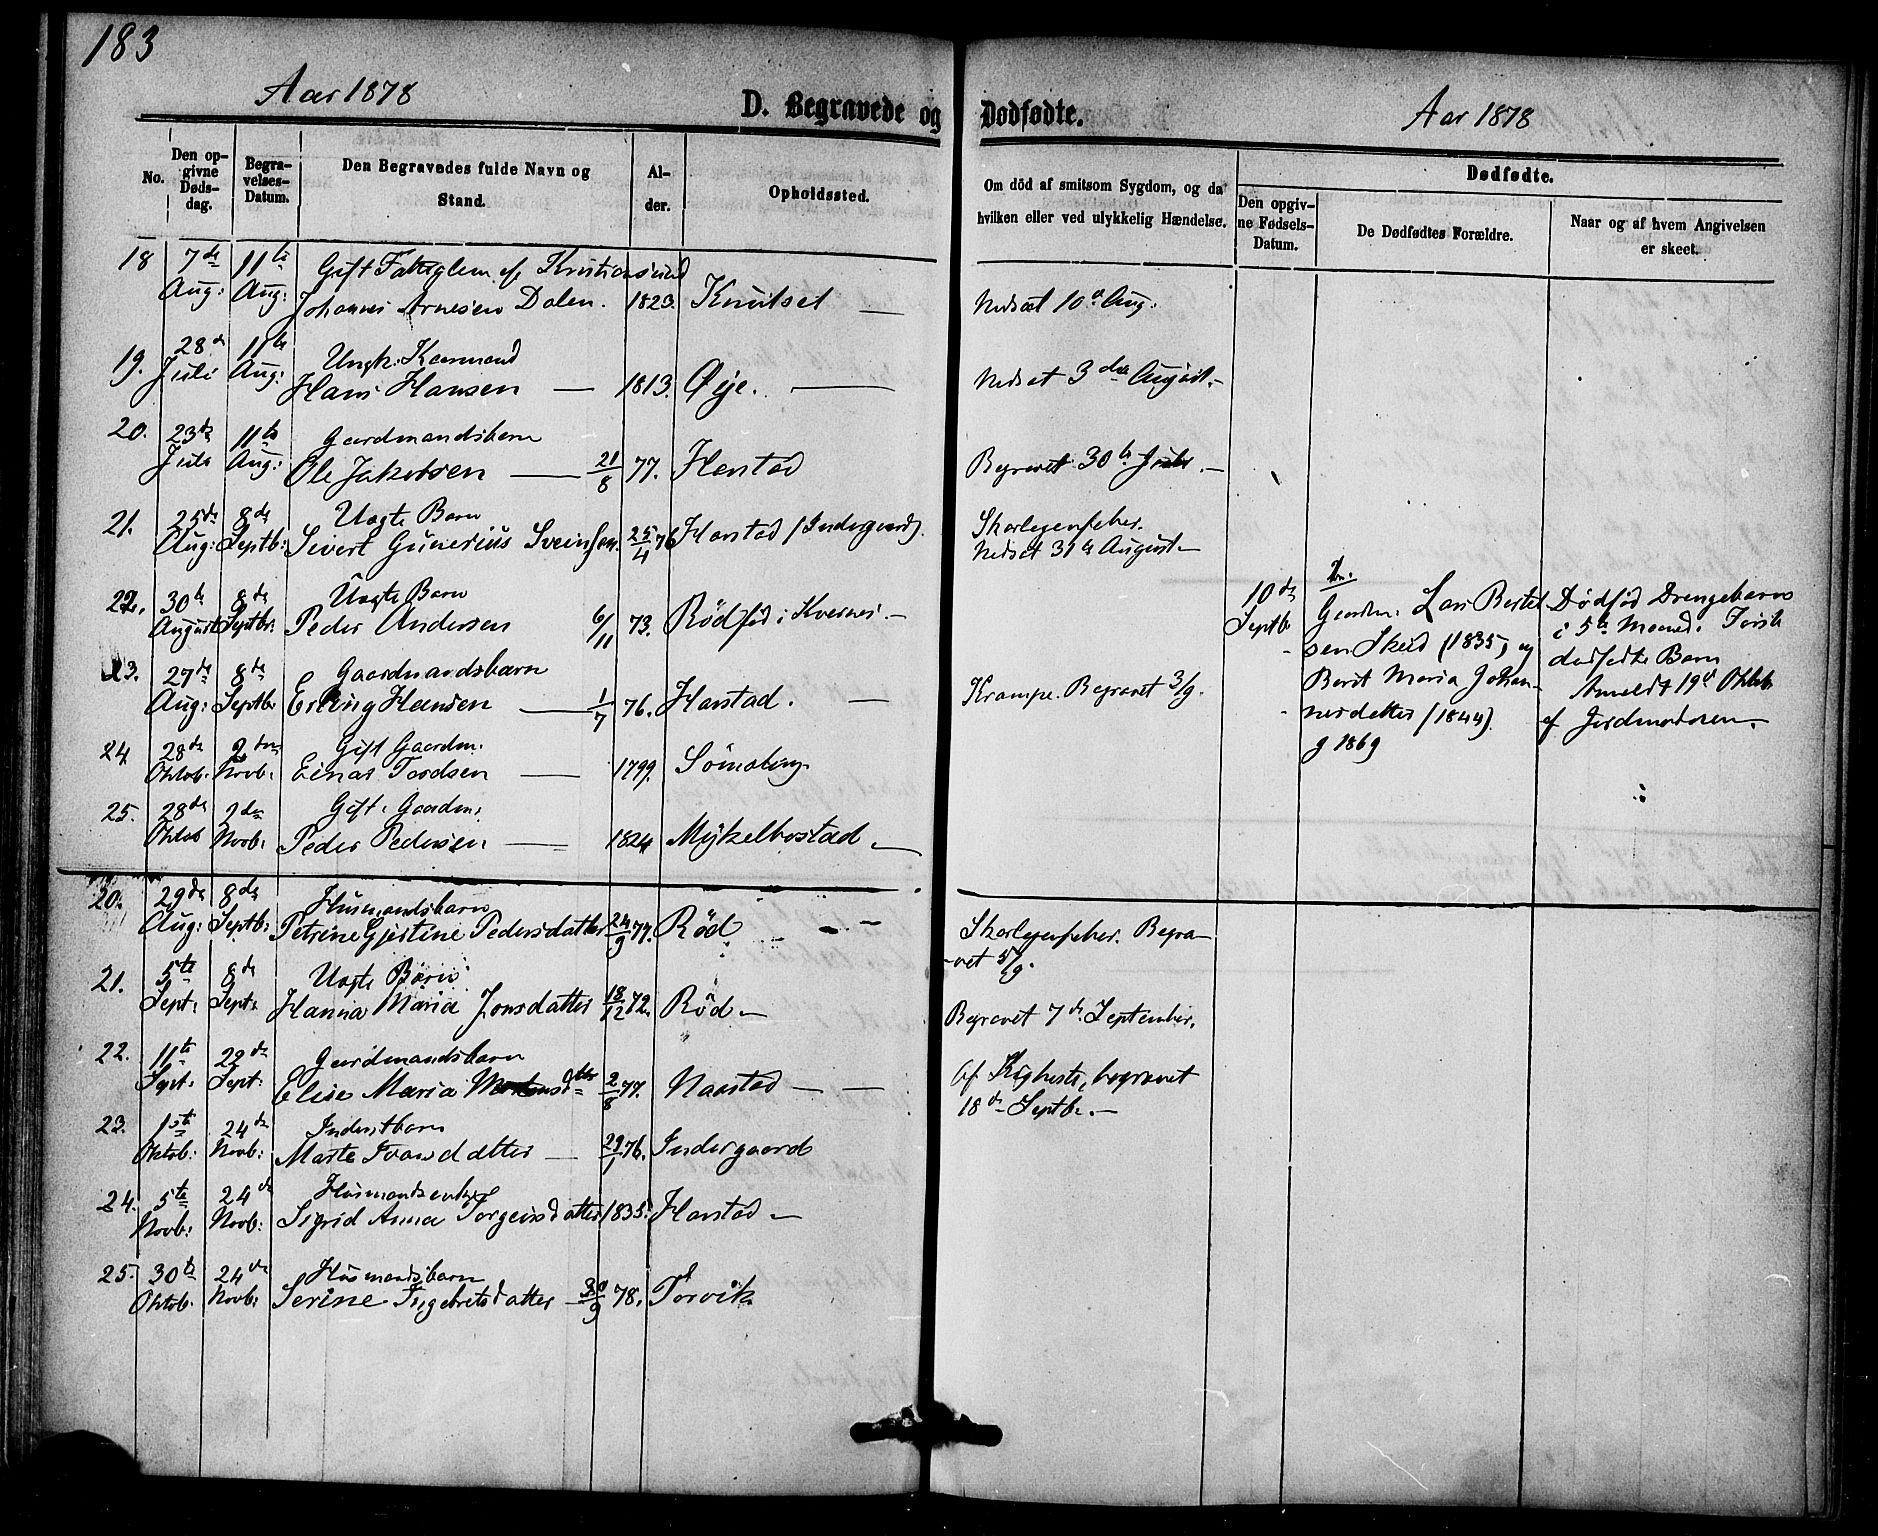 183
Aar 1878
D. Begravede og Dødfødte.
Aar 1878
No.
Den opgivne Dødsdag.
Begravelses-Datum.
Den Begravedes fulde Navn og Stand.
Alder.
Opholdssted.
Om död af smitsom Sygdom, og da hvilken eller ved ulykkelig Hændelse.
Dødfødte.
Den opgivne Fødsels-Datum.
De Dødfødtes Forældre.
Naar og af hvem Angivelsen er skeet.
18 7de 11te Gift Fattiglem af Kristiansund
Aug: Aug: Johannes Arnesen Dalen. 1823. Knutset — Nedsat 10d Aug.
19. 28de 11te Ungk. Kaarmand
Juli Aug: Hans Hansen — 1813. Øije. — Nedsat 3die August.
20. 23de 11te Gaardmandsbarn
Juli Aug: Ole Jakobsen — 21/8 77. Harstad Begravet 30te Juli.
21. 25de 8de Uægte Barn Skarlagensfeber.
Aug: Septb: Sivert Gunerius Sveinsen. 25/4 76 Harstad (Indergaard) Nedsat 31te August
22. 30te 8de Uægte Barn
August Septbr: Peder Andersen 6/11 73. Rödfød i Kvernes.
23. 27de 8de Gaardmandsbarn
Aug: Septb: Erling Hansen — 1/7 76. Harstad. — Krampe. Begravet 3/9.
24 28de 2den Gift Gaardm.
Oktob. Novb: Einar Tordsen — 1799.
25. 28de 2den Gift. Gaardm.
Oktob Novb: Peder Pedersen — 1824 Mykelbostad
10de
Septb
Gaardm. Lars Bertel
sen Skeid (1835) og
Berit Maria Johan-
nesdatter (1844)
g 1869
Dødfød Drengebarn
i 5te Maaned. Første
dødfødte Barn
Anmeldt 19de Oktob.
af Jordmoderen.
20. 29de 8de Husmandsbarn
Aug: Septb: Petrine Gjertine Pedersdatter 24/9 77. Röd — Skarlagensfeber. Begra-
vet 5/9.
21. 5te 8de Uægte Barn
Sept: Sept: Hanna Maria Jonsdatter 18/12 72. Röd Begravet 7de September.
22. 11te 22de Gaardmandsbarn
Sept: Sept: Elise Maria Mortensdtr 2/8 77. Naastad — Af Kighoste, begravet
18de Septb.
23. 1ste 24de Inderstbarn
Oktob: Novb: Marte Ivarsdatter — 29/1 76. Indergaard
24. 5te 24de Husmandsenke
Novb: Novb: Sigrid Anna Torgersdatter 1835. Harstad
25. 30te 24de Husmandsbarn
Oktob. Novb: Serine Ingebretsdatter 30/9 78. Torvik